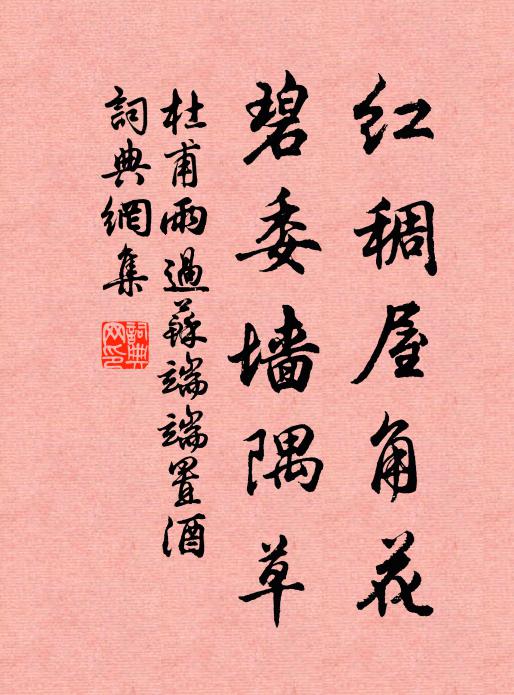 红稠屋角花
碧委墙隅草
杜甫雨過蘇端端置酒
詞典網集
詞典网印